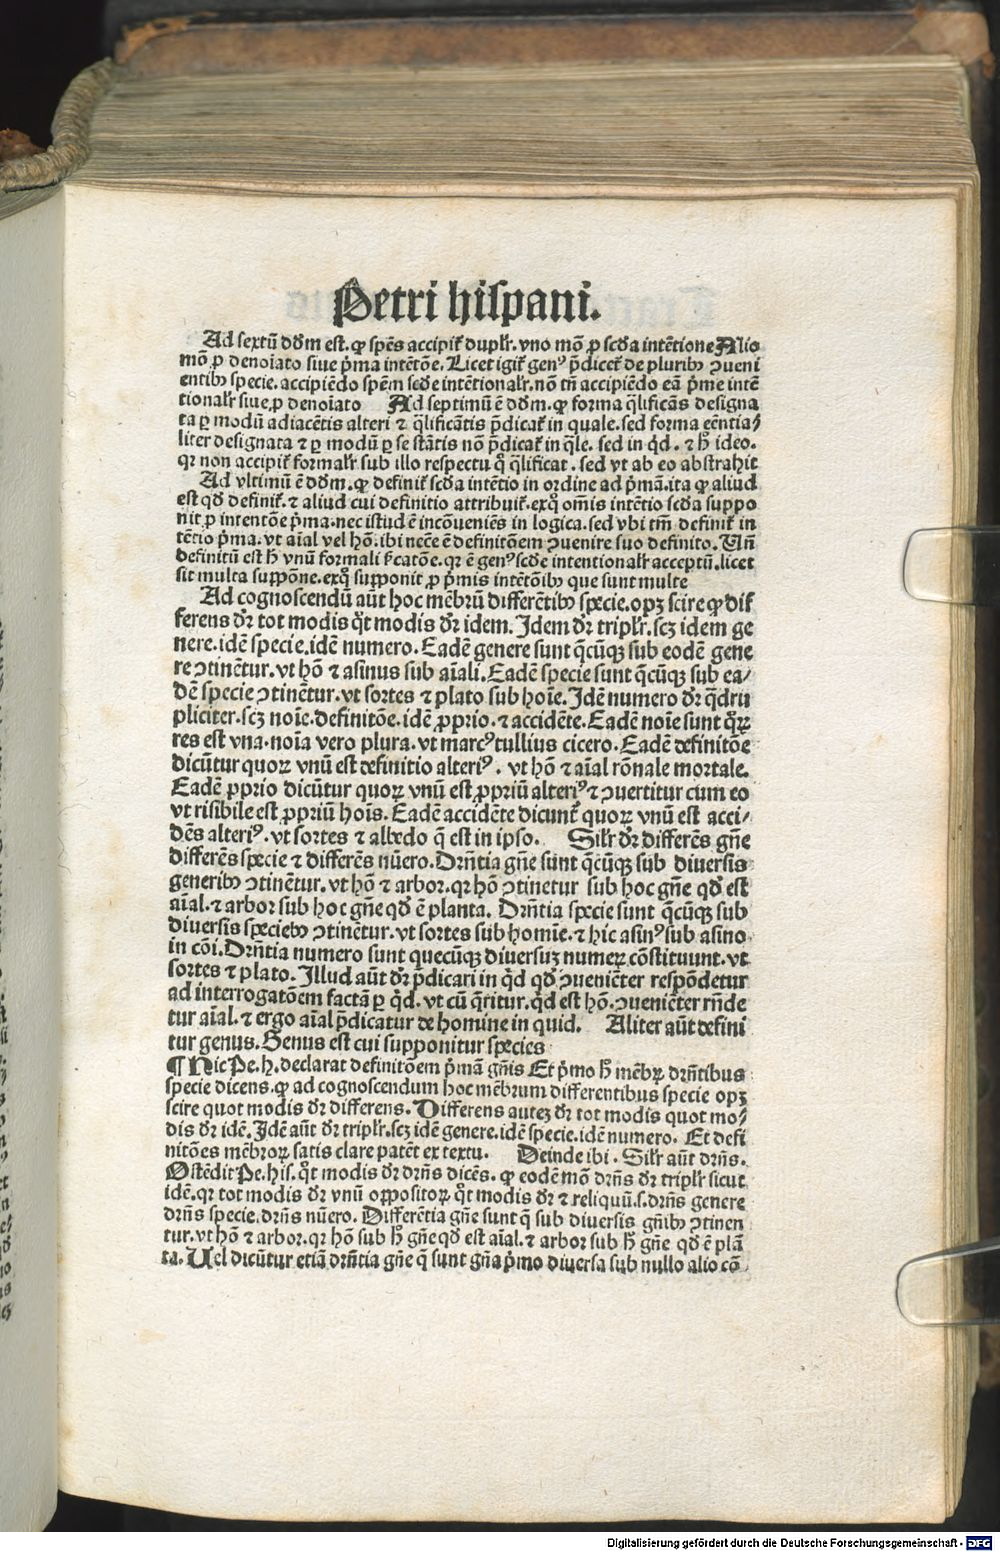 Petri hiſpani.
Ad ſextū dōm eſt. ꝙ ſpēs accipiť dupłr. vno mō ꝓ ſcďa intētione Alio
mō ꝓ denoīato ſiue p̄ma intētōe. Licet igiť genꝰ p̄dicet̄ de pluribꝫ ꝯueni
entibꝫ ſpecie. accipiēdo ſpēm ſcďe intētionałr. nō tn̄ accipiēdo eā p̄me intē
tionałr ſiue ꝓ denoīato Ad ſeptimū ē dōm. ꝙ forma q̄lificās deſigna
ta ꝑ modū adiacētis alteri ⁊ q̄lificātis p̄dicať in quale. ſed forma eēntia⸗
liter deſignata ⁊ ꝑ modū ꝑ ſe ſtātis nō p̄dicať in q̄le. ſed in qͥd. ⁊ ħ ideo.
qꝛ non accipiť formałr ſub illo reſpectu qͦ q̄lificat. ſed vt ab eo abſtrahit
Ad vltimū ē dōm. ꝙ definiť ſcďa intētio in ordine ad p̄mā. ita ꝙ aliud
eſt qď definiť. ⁊ aliud cui definitio attribuiť. exqͦ om̄is intētio ſcďa ſuppo
nit ꝓ intentōe p̄ma. nec iſtud ē incōueniēs in logica. ſed vbi tm̄ definiť in
tētio p̄ma. vt aīal vel hō. ibi neēe ē definitōem ꝯuenire ſuo definito. Vn̄
definitū eſt ħ vnū formali ſ̄catōe. qꝛ ē genꝰ ſcďe intentionałr acceptū. licet
ſit multa ſuppōne. exqͦ ſupponit ꝓ p̄mis intētōibꝫ que ſunt multe
Ad cognoſcendū aūt hoc mēbrū differētibꝫ ſpecie. opꝫ ſcire ꝙ dif
ferens dr̄ tot modis qͦt modis dr̄ idem. Idem dr̄ tripłr. ſcꝫ idem ge
nere. idē ſpecie. idē numero. Eadē genere ſunt q̄cūqꝫ ſub eodē gene
re ꝯtinētur. vt hō ⁊ aſinus ſub aīali. Eadē ſpecie ſunt q̄cūqꝫ ſub ea⸗
dē ſpecie ꝯtinētur. vt ſortes ⁊ plato ſub hoīe. Idē numero dr̄ q̄dru
pliciter. ſcꝫ noīe. definitōe. idē ꝓprio. ⁊ accidēte. Eadē noīe ſunt qͦꝝ
res eſt vna. noīa vero plura. vt marcꝰ tullius cicero. Eadē definitōe
dicūtur quoꝝ vnū eſt definitio alteriꝰ. vt hō ⁊ aīal rōnale mortale.
Eadē ꝓprio dicūtur quoꝝ vnū eſt ꝓpriū alteriꝰ ⁊ ꝯuertitur cum eo
vt riſibile eſt ꝓpriū hoīs. Eadē accidēte dicunť quoꝝ vnū eſt acci⸗
dēs alteriꝰ. vt ſortes ⁊ albedo q̄ eſt in ipſo. Siłr dr̄ differēs gn̄e
differēs ſpecie ⁊ differēs nūero. Drn̄tia gn̄e ſunt q̄cūqꝫ ſub diuerſis
generibꝫ ꝯtinētur. vt hō ⁊ arbor. qꝛ hō ꝯtinetur ſub hoc gn̄e qď eſt
aīal. ⁊ arbor ſub hoc gn̄e qď ē planta. Drn̄tia ſpecie ſunt q̄cūqꝫ ſub
diuerſis ſpeciebꝫ ꝯtinētur. vt ſortes ſub homīe. ⁊ hic aſinꝰ ſub aſino
in cōi. Drn̄tia numero ſunt quecūqꝫ diuerſuꝫ numeꝝ cōſtituunt. vt
ſortes ⁊ plato. Illud aūt dr̄ p̄dicari in qͥd qď ꝯueniēter reſpōdetur
ad interrogatōem factā ꝑ qͥd. vt cū q̄ritur. qͥd eſt hō. ꝯueniēter rn̄de
tur aīal. ⁊ ergo aīal p̄dicatur de homine in quid. Aliter aūt defini
tur genus. Genus eſt cui ſupponitur ſpecies
¶ Hic Pe. h. declarat definitōem p̄mā gn̄is Et p̄mo ħ mēbꝝ drn̄tibus
ſpecie dicens. ꝙ ad cognoſcendum hoc mēbrum differentibus ſpecie opꝫ
ſcire quot modis dr̄ differens. Differens auteꝫ dr̄ tot modis quot mo⸗
dis dr̄ idē. Idē aūt dr̄ tripłr. ſcꝫ idē genere. idē ſpecie. idē numero. Et defi
nitōes mēbroꝝ ſatis clare patēt ex textu. Deinde ibi. Siłr aūt drn̄s.
Oſtēdit Pe. hiſ. qͦt modis dr̄ drn̄s dicēs. ꝙ eodē mō drn̄s dr̄ tripłr ſicut
idē. qꝛ tot modis dr̄ vnū oppoſitoꝝ qͦt modis dr̄ ⁊ reliquū. ſ. drn̄s genere
drn̄s ſpecie. drn̄s nūero. Differētia gn̄e ſunt q̄ ſub diuerſis gn̄ibꝫ ꝯtinen
tur. vt hō ⁊ arbor. qꝛ hō ſub ħ gn̄e qď eſt aīal. ⁊ arbor ſub ħ gn̄e qď ē plā
ta. Uel dicūtur etiā drn̄tia gn̄e q̄ ſunt gn̄a p̄mo diuerſa ſub nullo alio cō
Digitalisierung gefördert durch die Deutsche Forschungsgemeinschaft - DFG